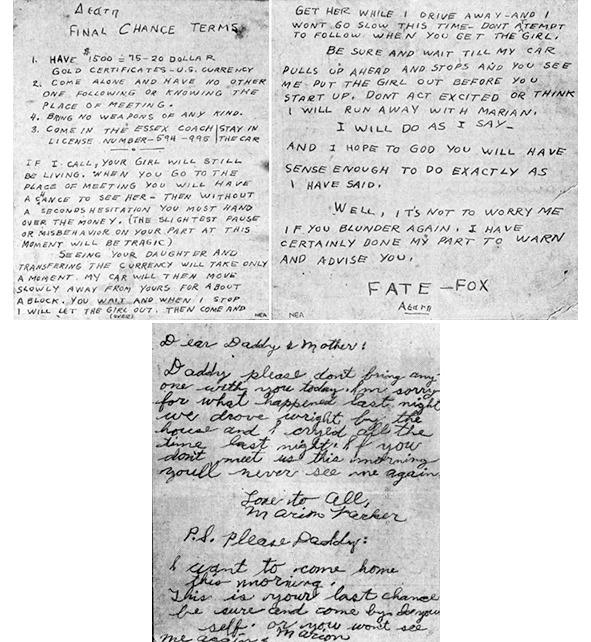 DEATH
FINAL CHANCE TERMS
1. HAVE $1500 = 75-20 DOLLAR
GOLD CERTIFICATES - U.S. CURRENCY
2. COME ALONE AND HAVE NO OTHER
ONE FOLLOWING OR KNOWING THE
PLACE OF MEETING.
4. BRING NO WEAPONS OF ANY KIND.
3. COME IN THE ESSEX COACH STAY IN
LICENSE NUMBER-594-995 THE CAR
IF I CALL, YOUR GIRL WILL STILL
BE LIVING. WHEN YOU GO TO THE
PLACE OF MEETING YOU WILL HAVE
A CHANCE TO SEE HER - THEN WITHOUT
A SECONDS HESITATION YOU MUST HAND
OVER THE MONEY. (THE SLIGHTEST PAUSE
OR MISBEHAVIOR ON YOUR PART AT THIS
MOMENT WILL BE TRAGIC)
SEEING YOUR DAUGHTER AND
TRANSFERING THE CURRENCY WILL TAKE ONLY
A MOMENT. MY CAR WILL THEN MOVE
SLOWLY AWAY FROM YOURS FOR ABOUT
A BLOCK. YOU WAIT AND WHEN I STOP
I WILL LET THE GIRL OUT. THEN COME AND
(OVER)
NEA
GET HER WHILE I DRIVE AWAY - AND I
WONT GO SLOW THIS TIME - DONT ATEMPT
TO FOLLOW WHEN YOU GET THE GIRL.
BE SURE AND WAIT TILL MY CAR
PULLS UP AHEAD AND STOPS AND YOU SEE
ME PUT THE GIRL OUT BEFORE YOU
START UP. DONT ACT EXCITED OR THINK
I WILL RUN AWAY WITH MARIAN.
I WILL DO AS I SAY -
AND I HOPE TO GOD YOU WILL HAVE
SENSE ENOUGH TO DO EXACTLY AS
I HAVE SAID.
WELL, IT'S NOT TO WORRY ME
IF YOU BLUNDER AGAIN. I HAVE
CERTAINLY DONE MY PART TO WARN
AND ADVISE YOU.
FATE - FOX
DEATH
NEA
Dear Daddy & Mother:
Daddy please dont bring any
one with you today. Im sorry
for what happened last night
we drove wright by the
house and I cryed all the
time last night. If you
dont meet us this morning
youll never see me again
Love to all,
Marion Parker
P.S. Please Daddy:
I want to come home
this morning.
This is your last chance
be sure and come by your
self. or you wont see
me again Marion